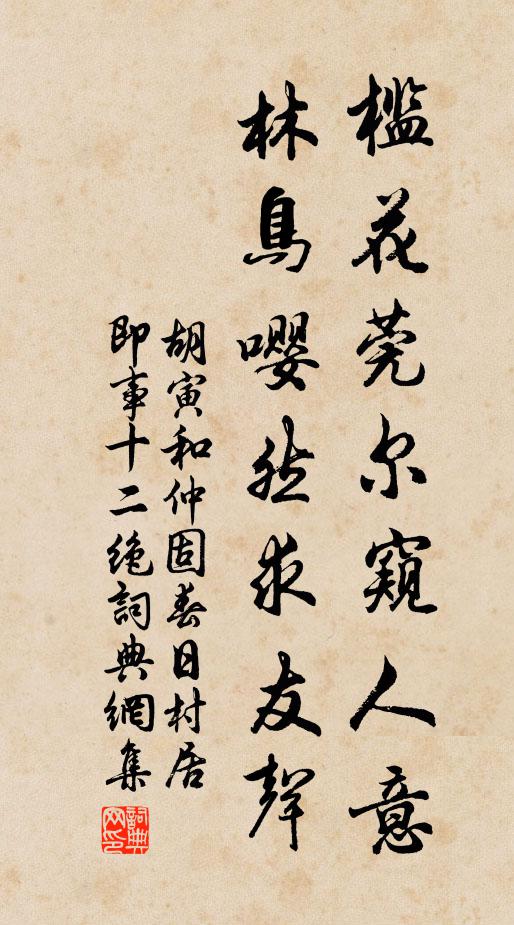 檻花莞尔窺人意
林鳥嚶然求友聲
胡寅和仲固春日村居
即事十二絶詞典網集
詞典
网印